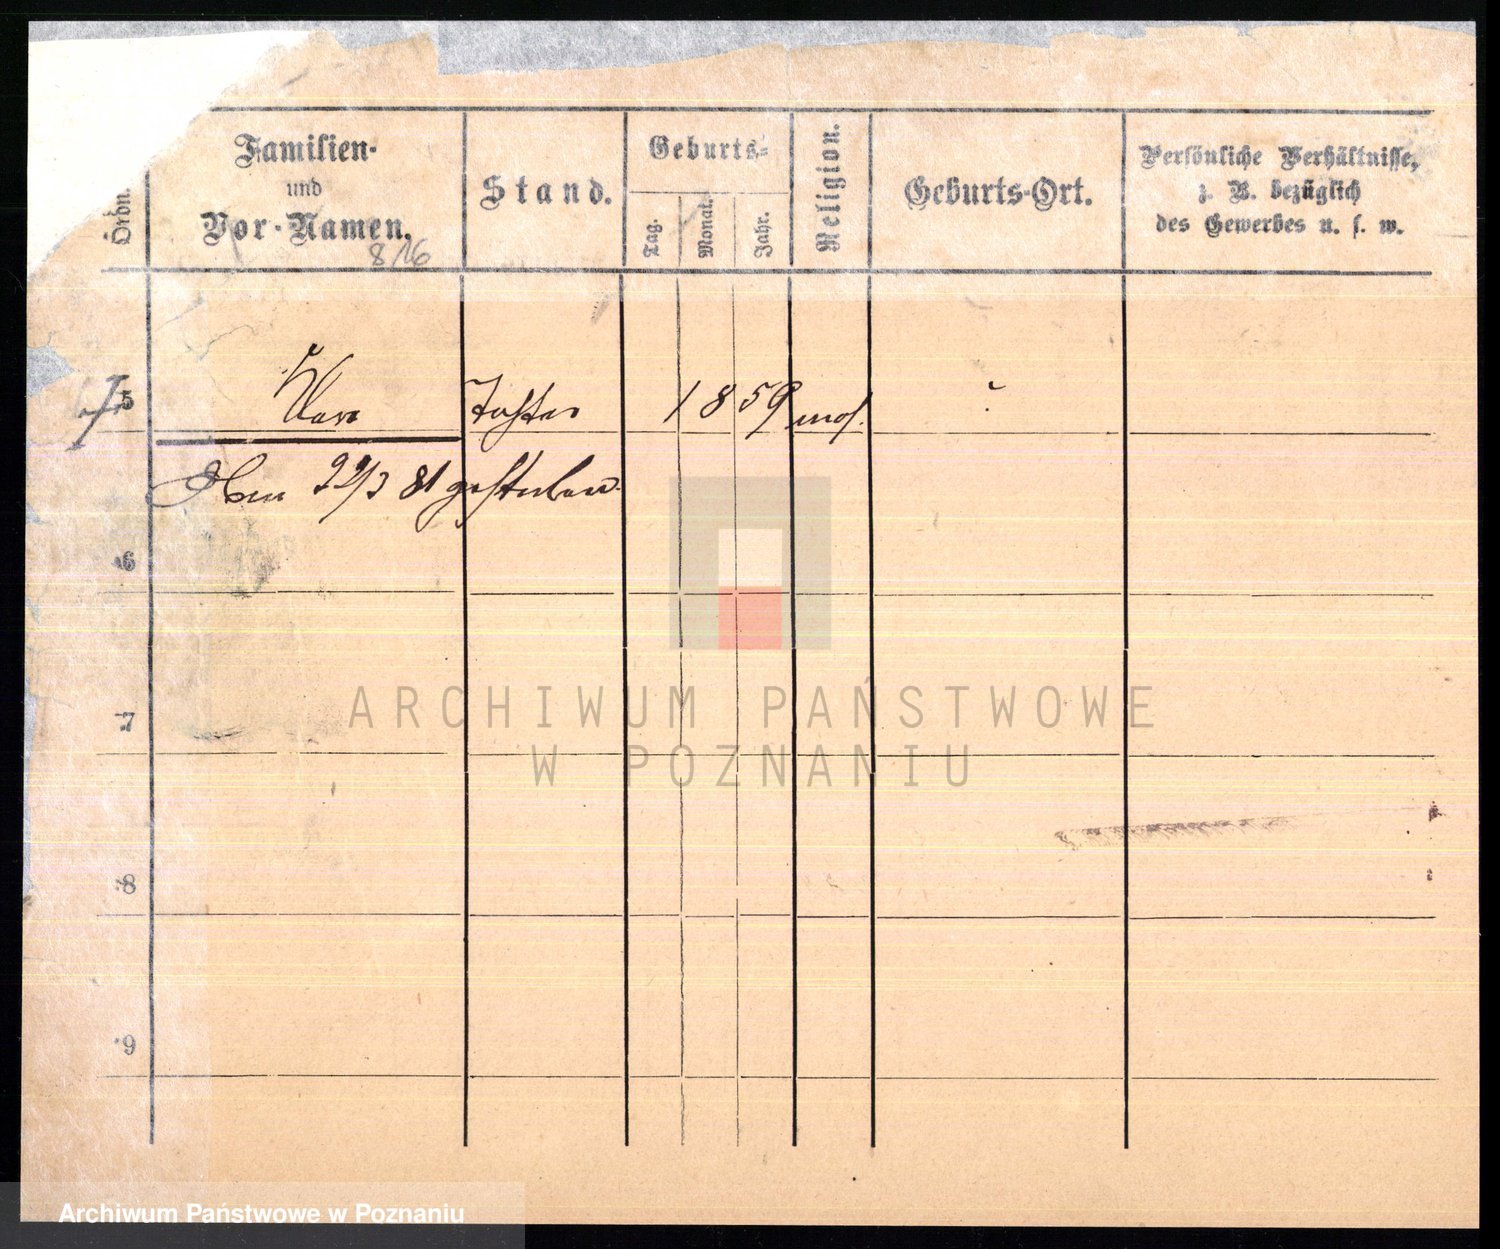 Ordn.
Familien-
und
Vor-Namen.
8/16
Stand.
Geburts-
Tag.
Monat.
Jahr.
Religion.
Geburts-Ort.
Persönliche Verhältnisse,
z. B. bezüglich
des Gewerbes u. s. w.
5 Tochter 1859 mos.
22/3 81 gestorben.
6
7
8
9
ARCHIWUM PAŃSTWOWE
W POZNANIU
Archiwum Państwowe w Poznaniu